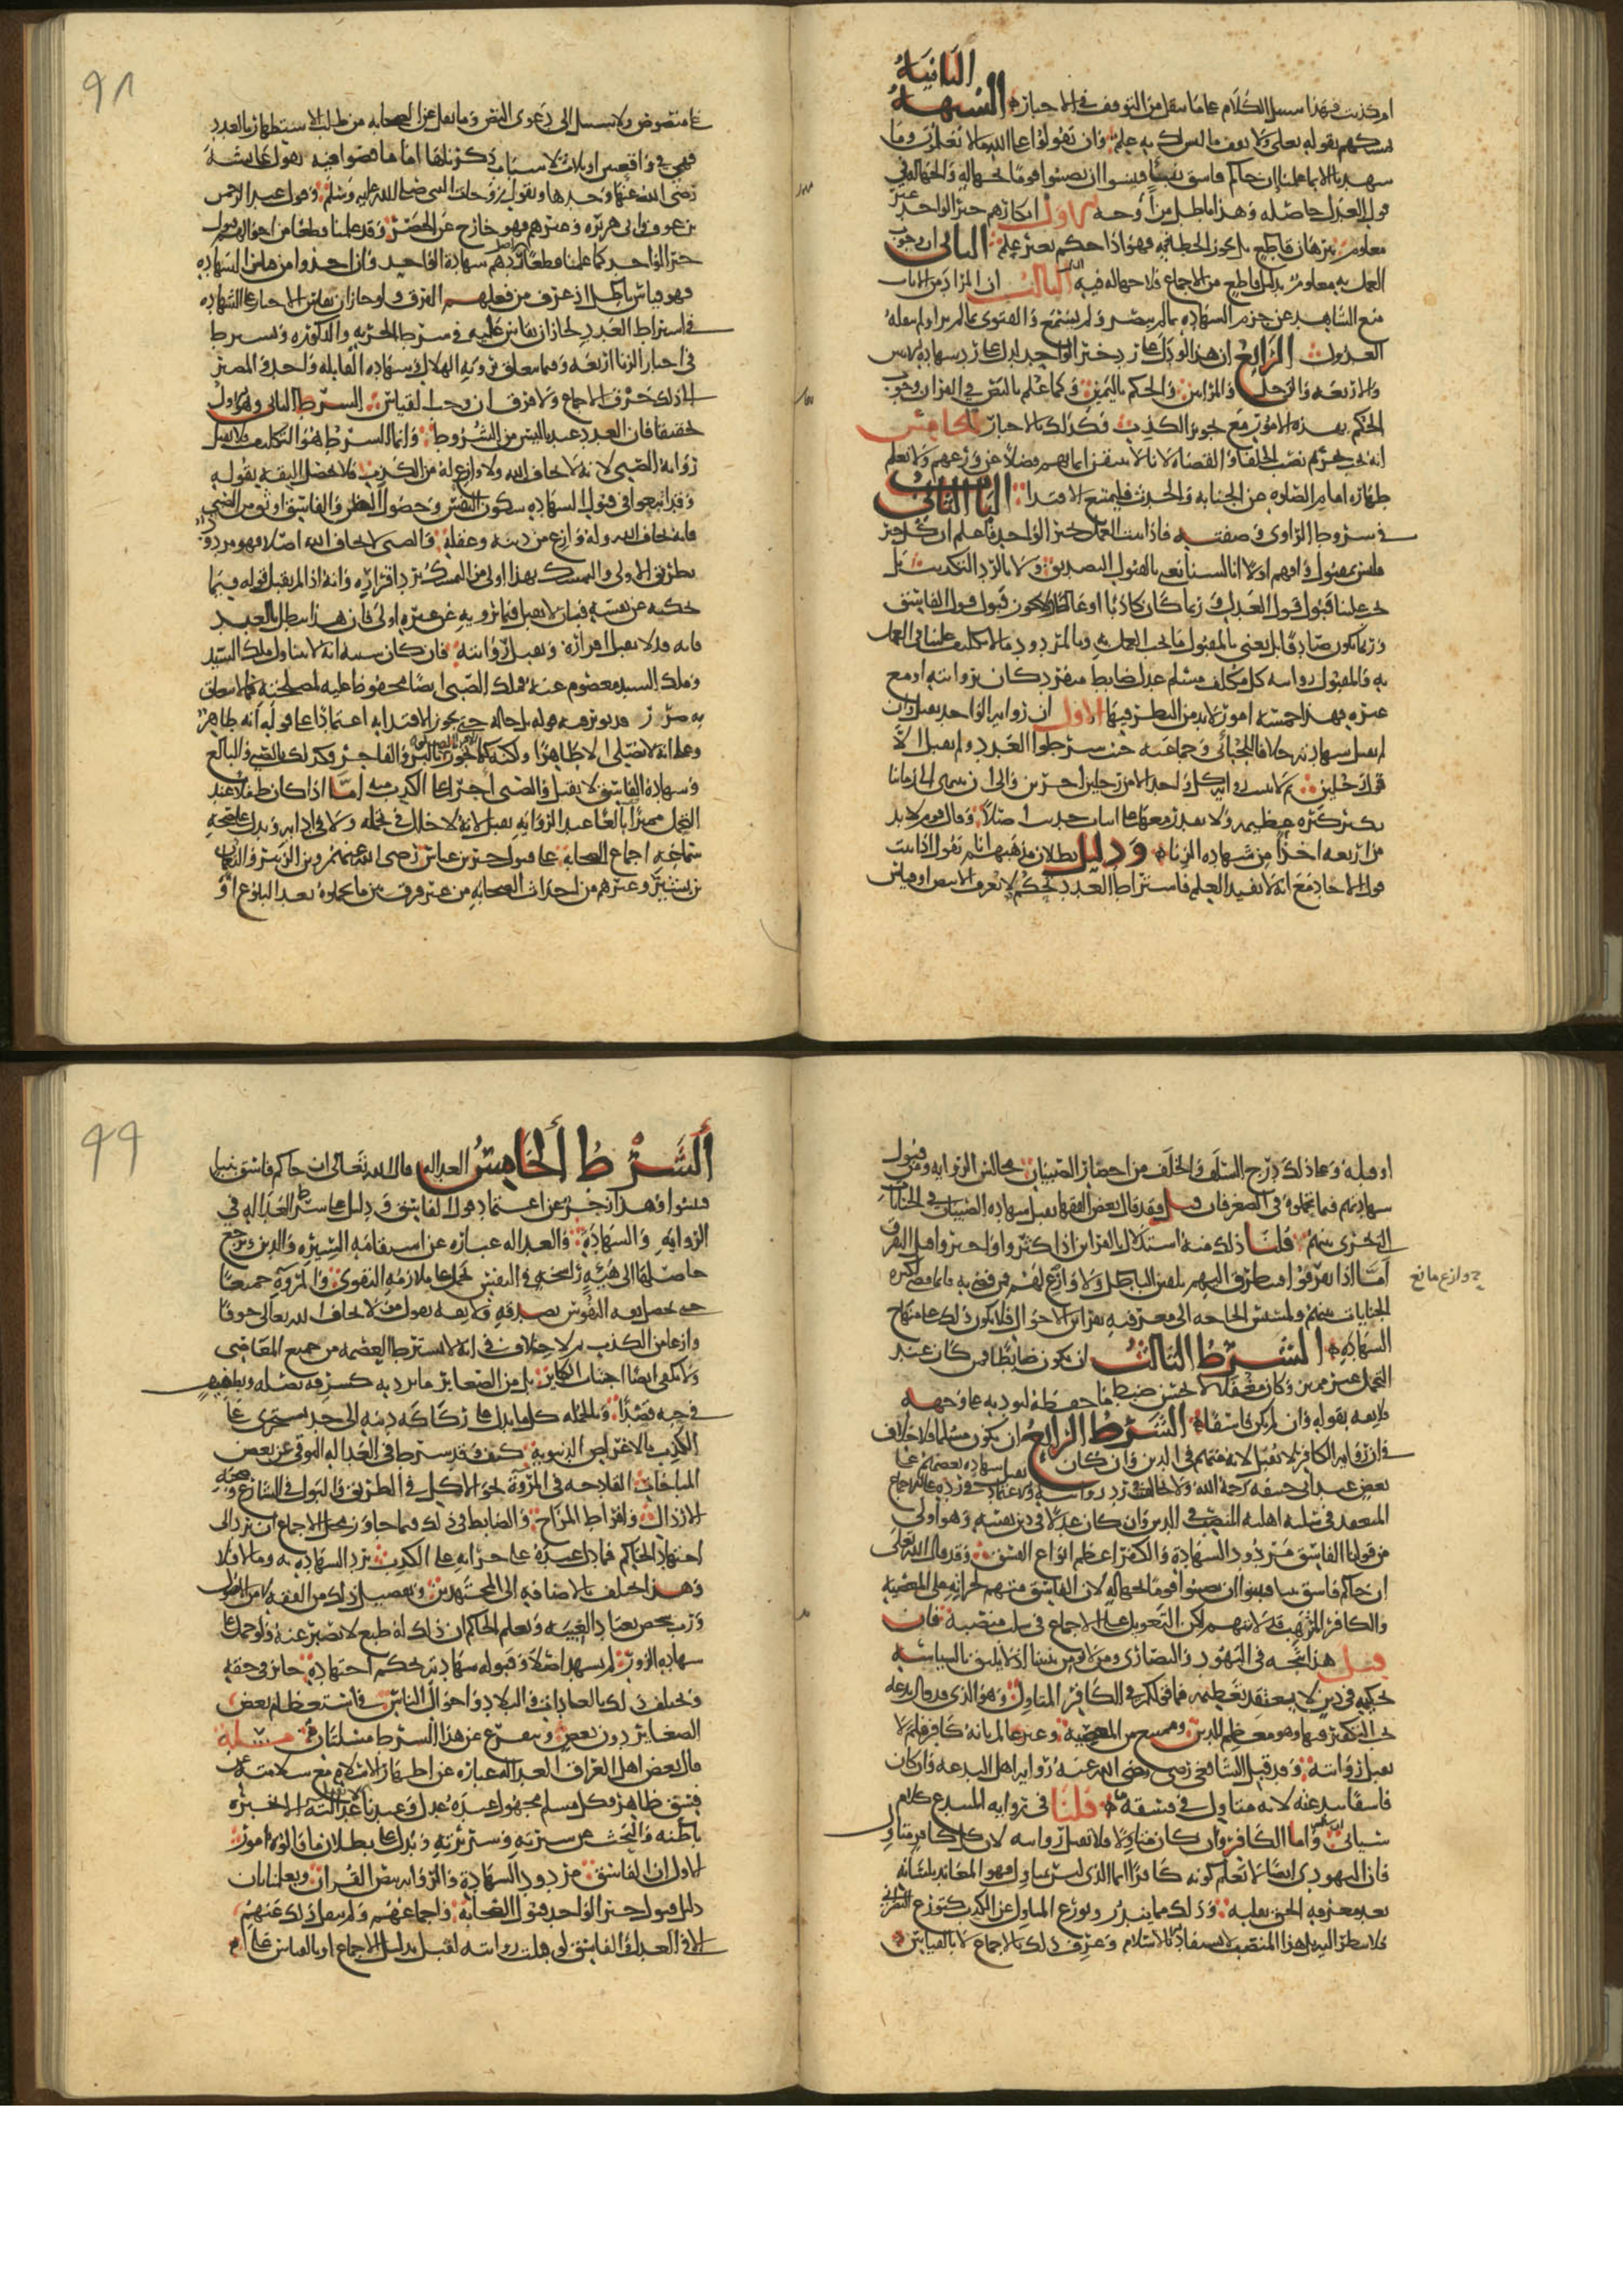 الثانية
ام كذبت فهذا سبيل الكلام على ما ينقل من التوقف في الاخبار الشبهة
تمسكهم بقوله تعالى ولا تقف ما ليس لك به علم وان تقولوا على الله ما لا تعلمون وما
شهدنا الا بما علمنا ان جاكم فاسق بنبأ فتبينوا ان تصيبوا قوما بجهالة والجهالة في
قول العدل حاصلة وهذا باطل من اوجه الاول انكارهم خبر الواحد غير
معلوم ببرهان قاطع بل يجوز الخطا فيه فهو اذا حكم بغير علم الثاني ان وجوب
العمل به معلوم بدليل قاطع من الاجماع فلا جهالة فيه الثالث ان المراد من الايات
منع الشاهد عن جزم الشهادة بما لم يبصر ولم يسمع والفتوى بما لم يرو ولم ينقله
العدول الرابع ان هذا لو دل على رد خبر الواحد لدل على رد شهادة الاثنين
والاربعة والرجل والمراتين والحكم باليمين وكما علم بالنص في القران وجوب
الحكم بهذه الامور مع تجويز الكذب فكذلك بالاخبار الخامس
انه يجب تحريم نصب الخلفا والقضاة لانا لا نتيقن ايمانهم فضلا عن ورعهم ولا نعلم
طهارة امام الصلوة عن الجنابة والحدث فليمتنع الاقتدا الباب الثاني
في شروط الراوي وصفته فاذا ثبت العمل بخبر الواحد فاعلم ان كل خبر
فليس بمقبول وافهم اولا انا لسنا نعني بالقبول التصديق ولا بالرد التكذيب بل
يجب علينا قبول قول العدل وربما كان كاذبا او غالطا ولا يجوز قبول قول الفاسق
وربما كان صادقا بل نعني بالمقبول ما يجب العمل به وبالمردود ما لا تكليف علينا في العمل
به فالمقبول رواية كل مكلف مسلم عدل ضابط منفردا كان بروايته او مع
غيره فهذه خمسة امور لا بد من النظر فيها الاول ان رواية الواحد تقبل وان
لم تقبل شهادته خلافا للجبائي وجماعة حيث شرطوا العدد ولم يقبلوا الا
قول رجلين ثم لا تثبت رواية كل واحد الا من رجلين اخرين والى ان ينتهي الى زماننا
يكثر كثرة عظيمة ولا يقدر معها على اثبات حديث اصلا وقال قوم لا بد
من اربعة اخذا من شهادة الزنا ودليل بطلان مذهبهم انا نقول اذا ثبت
قول الاحاد مع انه لا يفيد العلم فاشتراط العدد تحكم لا يعرف الا بنص او قياس
٩٨
على منصوص ولا سبيل الى دعوى النص وما نقل عن الصحابة من طلب الاستظهار بالعدد
فهي في واقعتين او ثلاث لاسباب ذكرناها اما ما قضوا فيه بقول عائشة
رضي الله عنها وحدها وبقول زوجات النبي صلى الله عليه وسلم وقول عبد الرحمن
بن عوف وابي هريرة وغيرهم فهو خارج عن الحصر وقد علمنا قطعا من احوالهم قبول
خبر الواحد كما علمنا قطعا ردهم شهادة الواحد وان اخذوا من قياس الشهادة
فهو قياس باطل اذ عرف من فعلهم الفرق ولو جاز ان يقاس الاخبار على الشهادة
في اشتراط العدد لجاز ان يقاس عليه في شرط الحرية والذكورة ويشرط
في اخبار الزنا اربعة وفيما يتعلق برؤية الهلال وشهادة القابلة واحد والمصير
الى ذلك خرق الاجماع ولا فرق ان وجب القياس الشرط الثاني وهو الاول
تحقيقا فان العدد عندنا ليس من الشروط وانما الشرط هو التكليف فلا تقبل
رواية الصبي لانه لا يخاف الله ولا وازع له من الكذب فلا تحصل الثقة بقوله
وقد اتبعوا في قبول الشهادة سكون النفس وحصول الظن والفاسق اوثق من الصبي
فانه يخاف الله وله وازع من دينه وعقله والصبي لا يخاف الله اصلا فهو مردود
بطريق الاولى والتمسك بهذا اولى من التمسك برد اقراره وانه اذا لم يقبل قوله فيما
يحكيه عن نفسه فبان لا يقبل فيما يرويه عن غيره اولى فان هذا يبطل بالعبد
فانه قد لا يقبل اقراره وتقبل روايته فان كان سببه انه لا يتناول ملك السيد
وملك السيد معصوم عنه فملك الصبي ايضا محفوظ عليه لمصلحته فما لا يتعلق
به ضرر قد يؤثر فيه قوله بل حاله حتى يجوز الاقتدا به اعتمادا على قوله انه طاهر
وعلى انه لا يصلي الا طاهرا ولكنه كما يجوز الاقتدا بالبر والفاجر وكذلك بالصبي والبالغ
وشهادة الفاسق لا تقبل والصبي اجرا على الكذب منه اما اذا كان طفلا عند
التحمل مميزا بالغا عند الرواية يقبل لانه لا خلل في تحمله ولا في ادائه ويدل على صحة
سماعه اجماع الصحابة على قبول خبر ابن عباس رضي الله عنهم وابن الزبير والنعمان
بن بشير وغيرهم من احداث الصحابة من غير فرق بين ما تحملوه بعد البلوغ او
او قبله وعلى ذلك درج السلف والخلف من احضار الصبيان مجالس الرواية ومن قبول
شهادتهم فيما تحملوه في الصغر فان قيل فقد قال بعض الفقها تقبل شهادة الصبيان في الجنايات
التي تجري بينهم قلنا ذلك منه استدلال بالقرائن اذا كثروا واخبروا قبل التفرق
اما اذا تفرقوا فيتطرق اليهم تلقين الباطل ولا وازع لهم فمن قضى به فانما قضى لكثرة
ج وازع مانع
الجنايات بينهم ولمسيس الحاجة الى معرفته بقرائن الاحوال فلا يكون ذلك على منهاج
الشهادة الشرط الثالث ان يكون ضابطا فمن كان عند
التحمل غير مميز وكان مغفلا لا يحسن ضبط ما حفظه ليوديه على وجهه
فلا ثقة بقوله وان لم يكن فاسقا الشرط الرابع ان يكون مسلما ولا خلاف
في ان رواية الكافر لا تقبل لانه متهم في الدين وان كان تقبل شهادة بعضهم على
بعض عند ابي حنيفة رحمة الله ولا يخالف في رد روايته والاعتماد في ردها على الاجماع
المنعقد في سلبه اهلية هذا المنصب في الدين وان كان عدلا في دين نفسه وهو اولى
من قولنا الفاسق مردود الشهادة والكفر اعظم انواع الفسق وقد قال الله تعالى
ان جاكم فاسق بنبا فتبينوا ان تصيبوا قوما بجهالة لان الفاسق متهم لجرأته على المعصية
والكافر المترهب قد لا يتهم لكن التعويل على الاجماع في سلب منصبه فان
قيل هذا يتجه في اليهود والنصارى ومن لا يؤمن بديننا اذ لا يليق بالسياسة
تحكيمه في دين لا يعتقد تعظيمه فما قولكم في الكافر المتاول وهو الذي قد قال ببدعة
يجب التكفير بها وهو معظم للدين وممتنع من المعصية وغير عالم بانه كافر فلم لا
تقبل روايته وقد قبل الشافعي رضي الله عنه رواية اهل البدعة وان كان
فاسقا ببدعته لانه متاول في فسقه قلنا في رواية المبتدع كلام
سياتي واما الكافر وان كان متاولا فلا تقبل روايته لان كل كافر متاول
فان اليهودي ايضا لا نعلم كونه كافرا اما الذي ليس بمتاول فهو المعاند بلسانه
بعد معرفة الحق بقلبه وذلك مما يندر وتورع المتاول عن الكذب كتورع النصراني
فلا ينظر اليه بل هذا المنصب لا يستفاد الا بالاسلام وعرف ذلك بالاجماع لا بالقياس
٩٩
الشرط الخامس العدالة قال الله تعالى ان جاكم فاسق بنبا
فتبينوا وهذا زجر عن اعتماد قول الفاسق ودليل على شرط العدالة في
الرواية والشهادة والعدالة عبارة عن استقامة السيرة والدين ويرجع
حاصلها الى هيئة راسخة في النفس تحمل على ملازمة التقوى والمروة جميعا
حتى تحصل ثقة النفوس بصدقه ولا ثقة بقول من لا يخاف الله تعالى خوفا
وازعا من الكذب ثم لا خلاف في انه لا يشترط العصمة من جميع المعاصي
ولا يكفي ايضا اجتناب الكبائر بل من الصغائر ما يرد به كسرقة بصلة وتطفيف
في حبة قصدا وبالجملة كل ما يدل على ركاكة دينه الى حد يستجري على
الكذب بالاغراض الدنيوية كيف وقد شرط في العدالة التوقي عن بعض
المباحات القادحة في المروة نحو الاكل في الطريق والبول في الشارع وصحبة
الارذال وافراط المزاح والضابط في ذلك فيما جاوز محل الاجماع ان يرد الى
اجتهاد الحاكم فما دل عنده على جراته على الكذب يرد الشهادة به وما لا فلا
وهذا يختلف بالاضافة الى المجتهدين وتفصيل ذلك من الفقه لا من الاصول
ورب شخص يعتاد الغيبة ويعلم الحاكم ان ذلك له طبع لا يصبر عنه ولو حمل على
شهادة الزور لم يشهد اصلا وقبوله شهادته بحكم اجتهاده جائز في حقه
ويختلف ذلك بالعادات في البلاد واحوال الناس في استعظام بعض
الصغائر دون بعض ويتفرع عن هذا الشرط مسئلتان مسئلة
قال بعض اهل العراق العدالة عبارة عن اظهار الاسلام مع سلامته عن
فسق ظاهر فكل مسلم مجهول عنده عدل وعندنا لا تعرف عدالته الا بخبرة
باطنه والبحث عن سيرته وسريرته ويدل على بطلان ما قالوه امور
الاول ان الفاسق مردود الشهادة والرواية بنص القران ولعلمنا بان
دليل قبول خبر الواحد قبول الصحابة واجماعهم ولم ينقل ذلك عنهم
الا في العدل والفاسق لو قبلت روايته لقبل بدليل الاجماع او بالقياس على